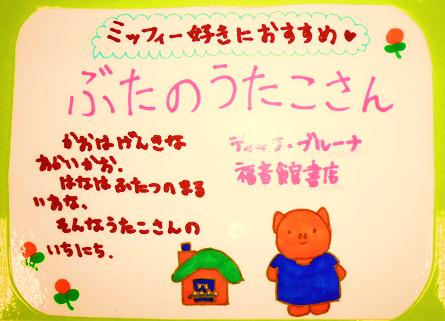 ミッフィー好きにおすすめ♥
ぶたのうたこさん
かおはげんきな
あかいかお.
はなはふたつのまる
いあな.
そんなうたこさんの
いちにち.
ディック・ブルーナ
福音館書店